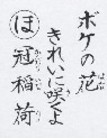 ボケの花
きれいに咲くよ
ほ冠稲荷